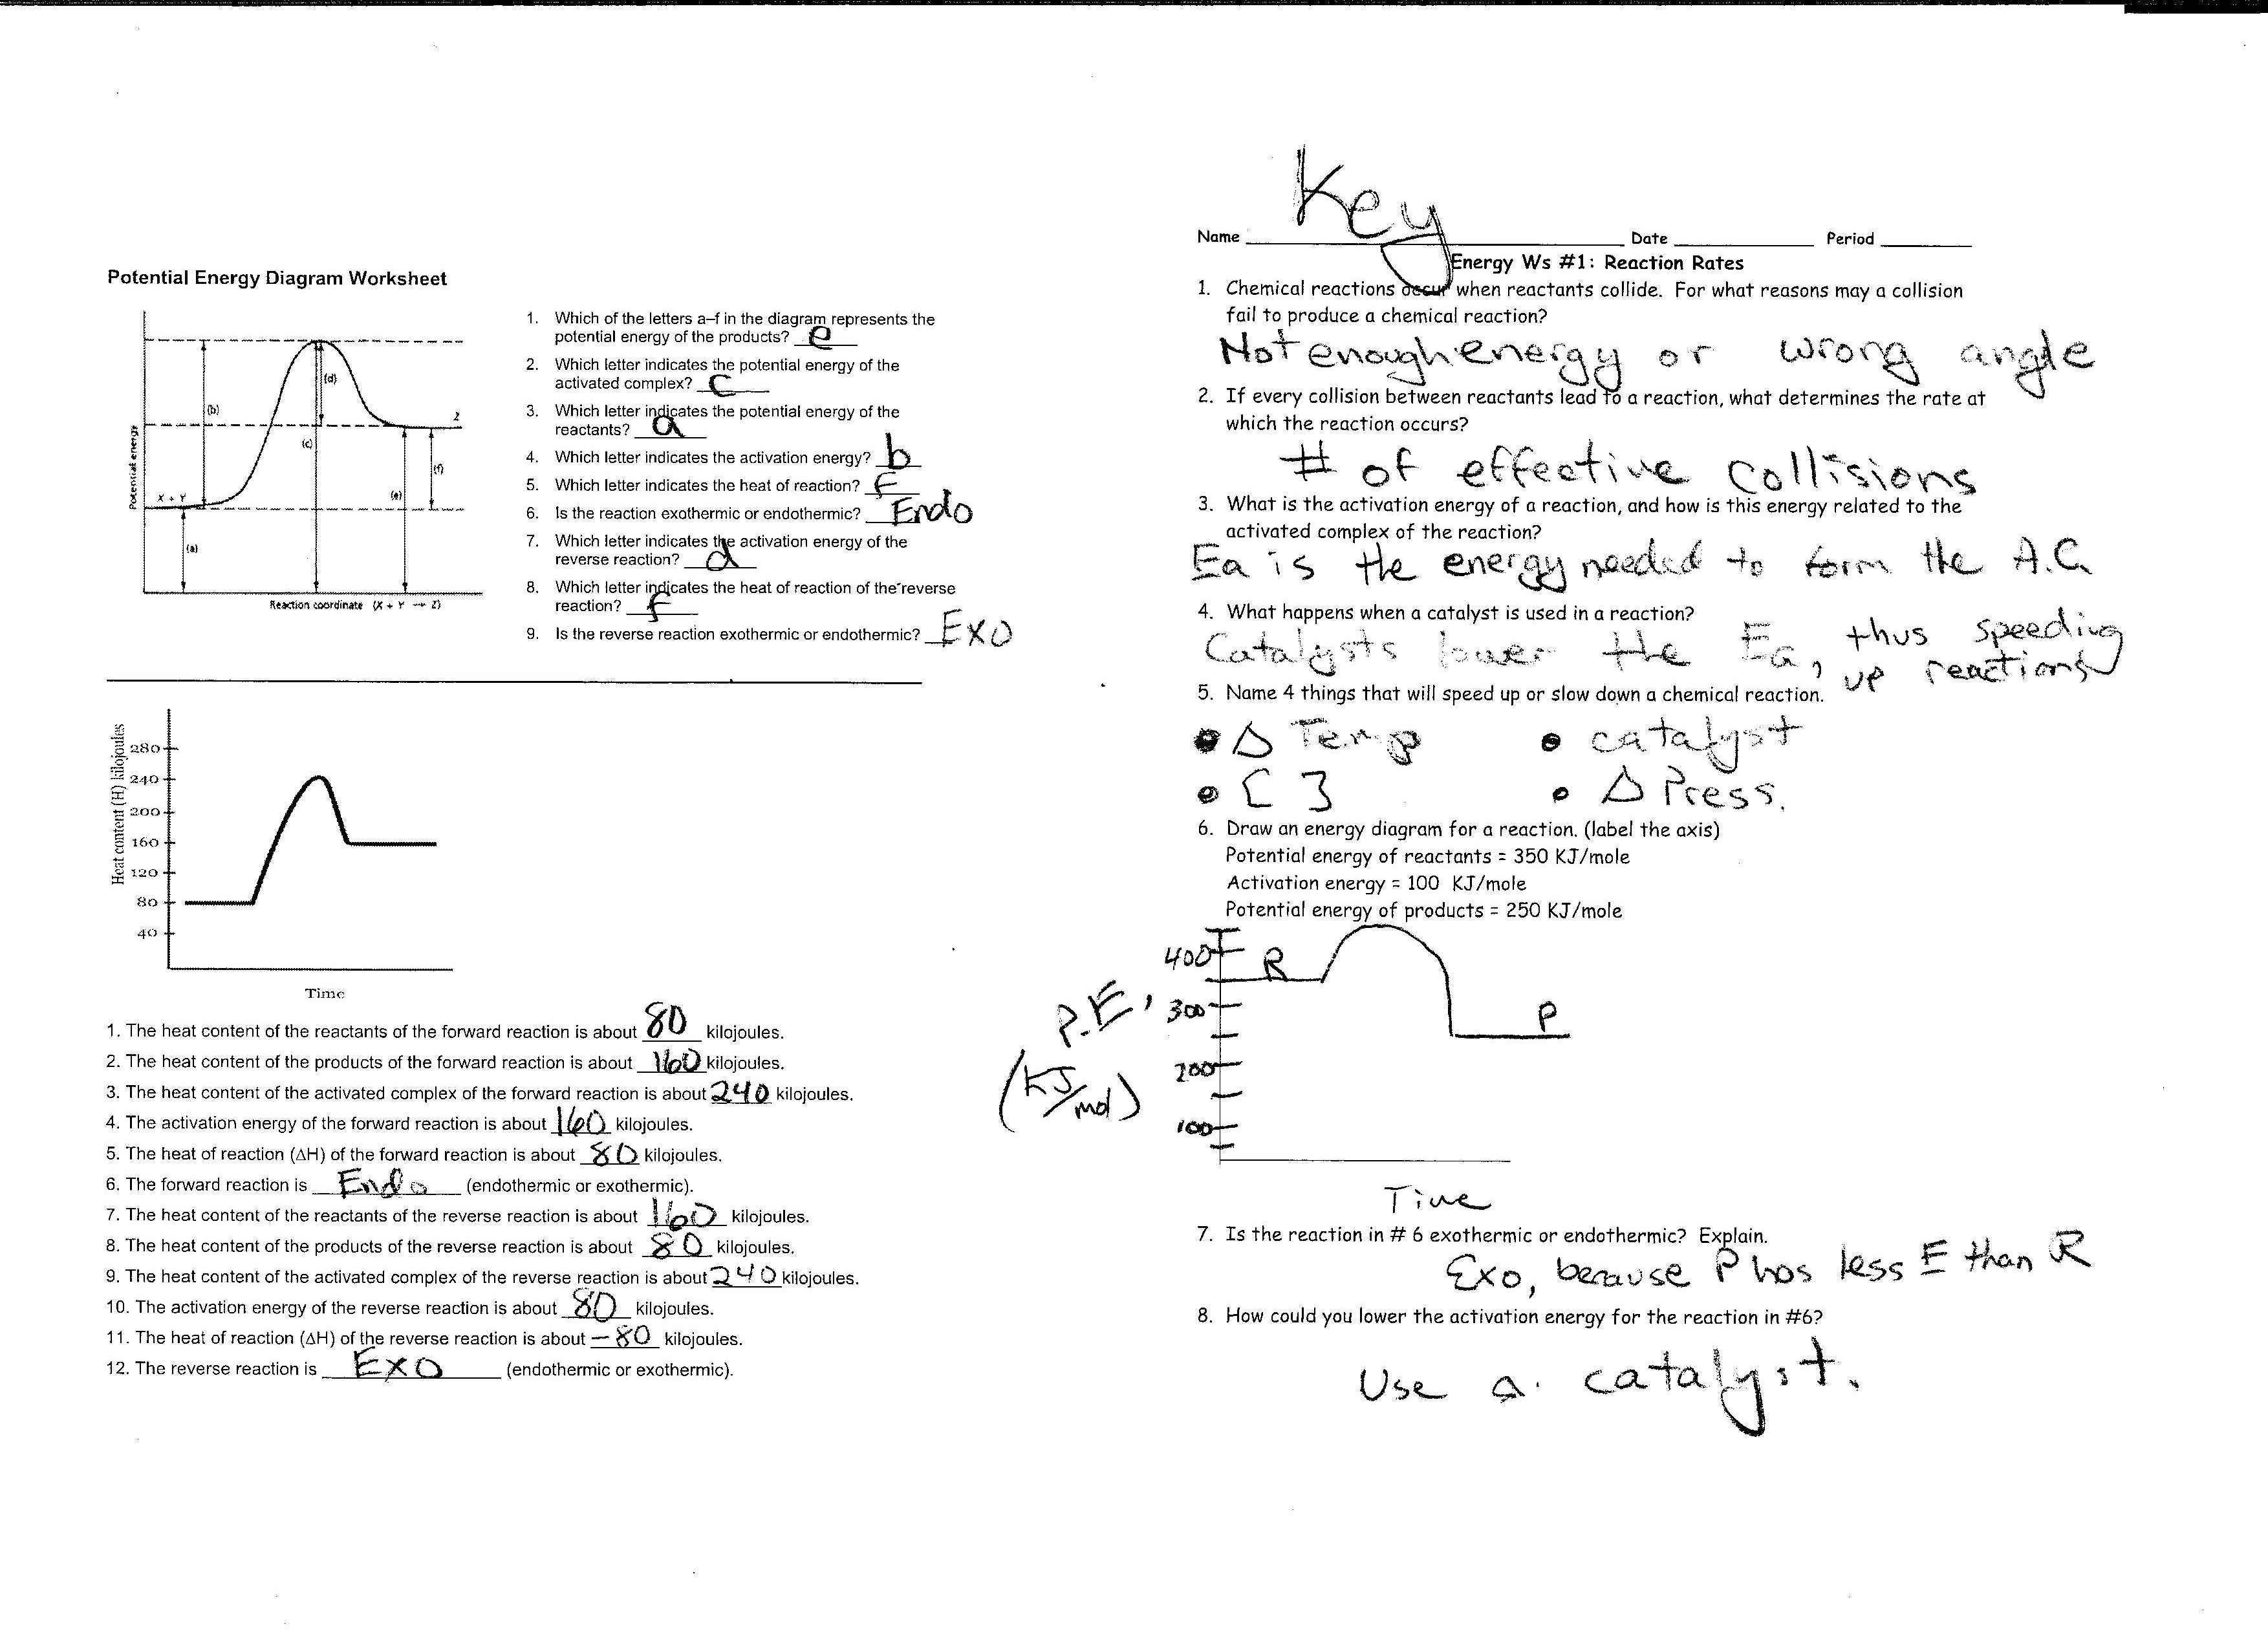 Potential Energy Diagram Worksheet
Potential energy
X + Y
(a)
(b)
(c)
(d)
(e)
(f)
Z
Reaction coordinate (X + Y → Z)
1. Which of the letters a–f in the diagram represents the
potential energy of the products? e
2. Which letter indicates the potential energy of the
activated complex? c
3. Which letter indicates the potential energy of the
reactants? a
4. Which letter indicates the activation energy? b
5. Which letter indicates the heat of reaction? f
6. Is the reaction exothermic or endothermic? Endo
7. Which letter indicates the activation energy of the
reverse reaction? d
8. Which letter indicates the heat of reaction of the reverse
reaction? f
9. Is the reverse reaction exothermic or endothermic? Exo
Heat content (H) kilojoules
280
240
200
160
120
80
40
Time
1. The heat content of the reactants of the forward reaction is about 80 kilojoules.
2. The heat content of the products of the forward reaction is about 160 kilojoules.
3. The heat content of the activated complex of the forward reaction is about 240 kilojoules.
4. The activation energy of the forward reaction is about 160 kilojoules.
5. The heat of reaction (ΔH) of the forward reaction is about 80 kilojoules.
6. The forward reaction is Endo (endothermic or exothermic).
7. The heat content of the reactants of the reverse reaction is about 160 kilojoules.
8. The heat content of the products of the reverse reaction is about 80 kilojoules.
9. The heat content of the activated complex of the reverse reaction is about 240 kilojoules.
10. The activation energy of the reverse reaction is about 80 kilojoules.
11. The heat of reaction (ΔH) of the reverse reaction is about -80 kilojoules.
12. The reverse reaction is Exo (endothermic or exothermic).
Key
Name Date Period
Energy Ws #1: Reaction Rates
1. Chemical reactions occur when reactants collide. For what reasons may a collision
fail to produce a chemical reaction?
Not enough energy or wrong angle
2. If every collision between reactants lead to a reaction, what determines the rate at
which the reaction occurs?
# of effective collisions
3. What is the activation energy of a reaction, and how is this energy related to the
activated complex of the reaction?
Ea is the energy needed to form the A.C.
4. What happens when a catalyst is used in a reaction?
Catalysts lower the Ea, thus speeding
up reactions
5. Name 4 things that will speed up or slow down a chemical reaction.
• Δ Temp • catalyst
• [ ] • Δ Press.
6. Draw an energy diagram for a reaction. (label the axis)
Potential energy of reactants = 350 KJ/mole
Activation energy = 100 KJ/mole
Potential energy of products = 250 KJ/mole
P.E,
(KJ/mol)
400
300
200
100
R
P
Time
7. Is the reaction in # 6 exothermic or endothermic? Explain.
Exo, because P has less E than R
8. How could you lower the activation energy for the reaction in #6?
Use a catalyst.